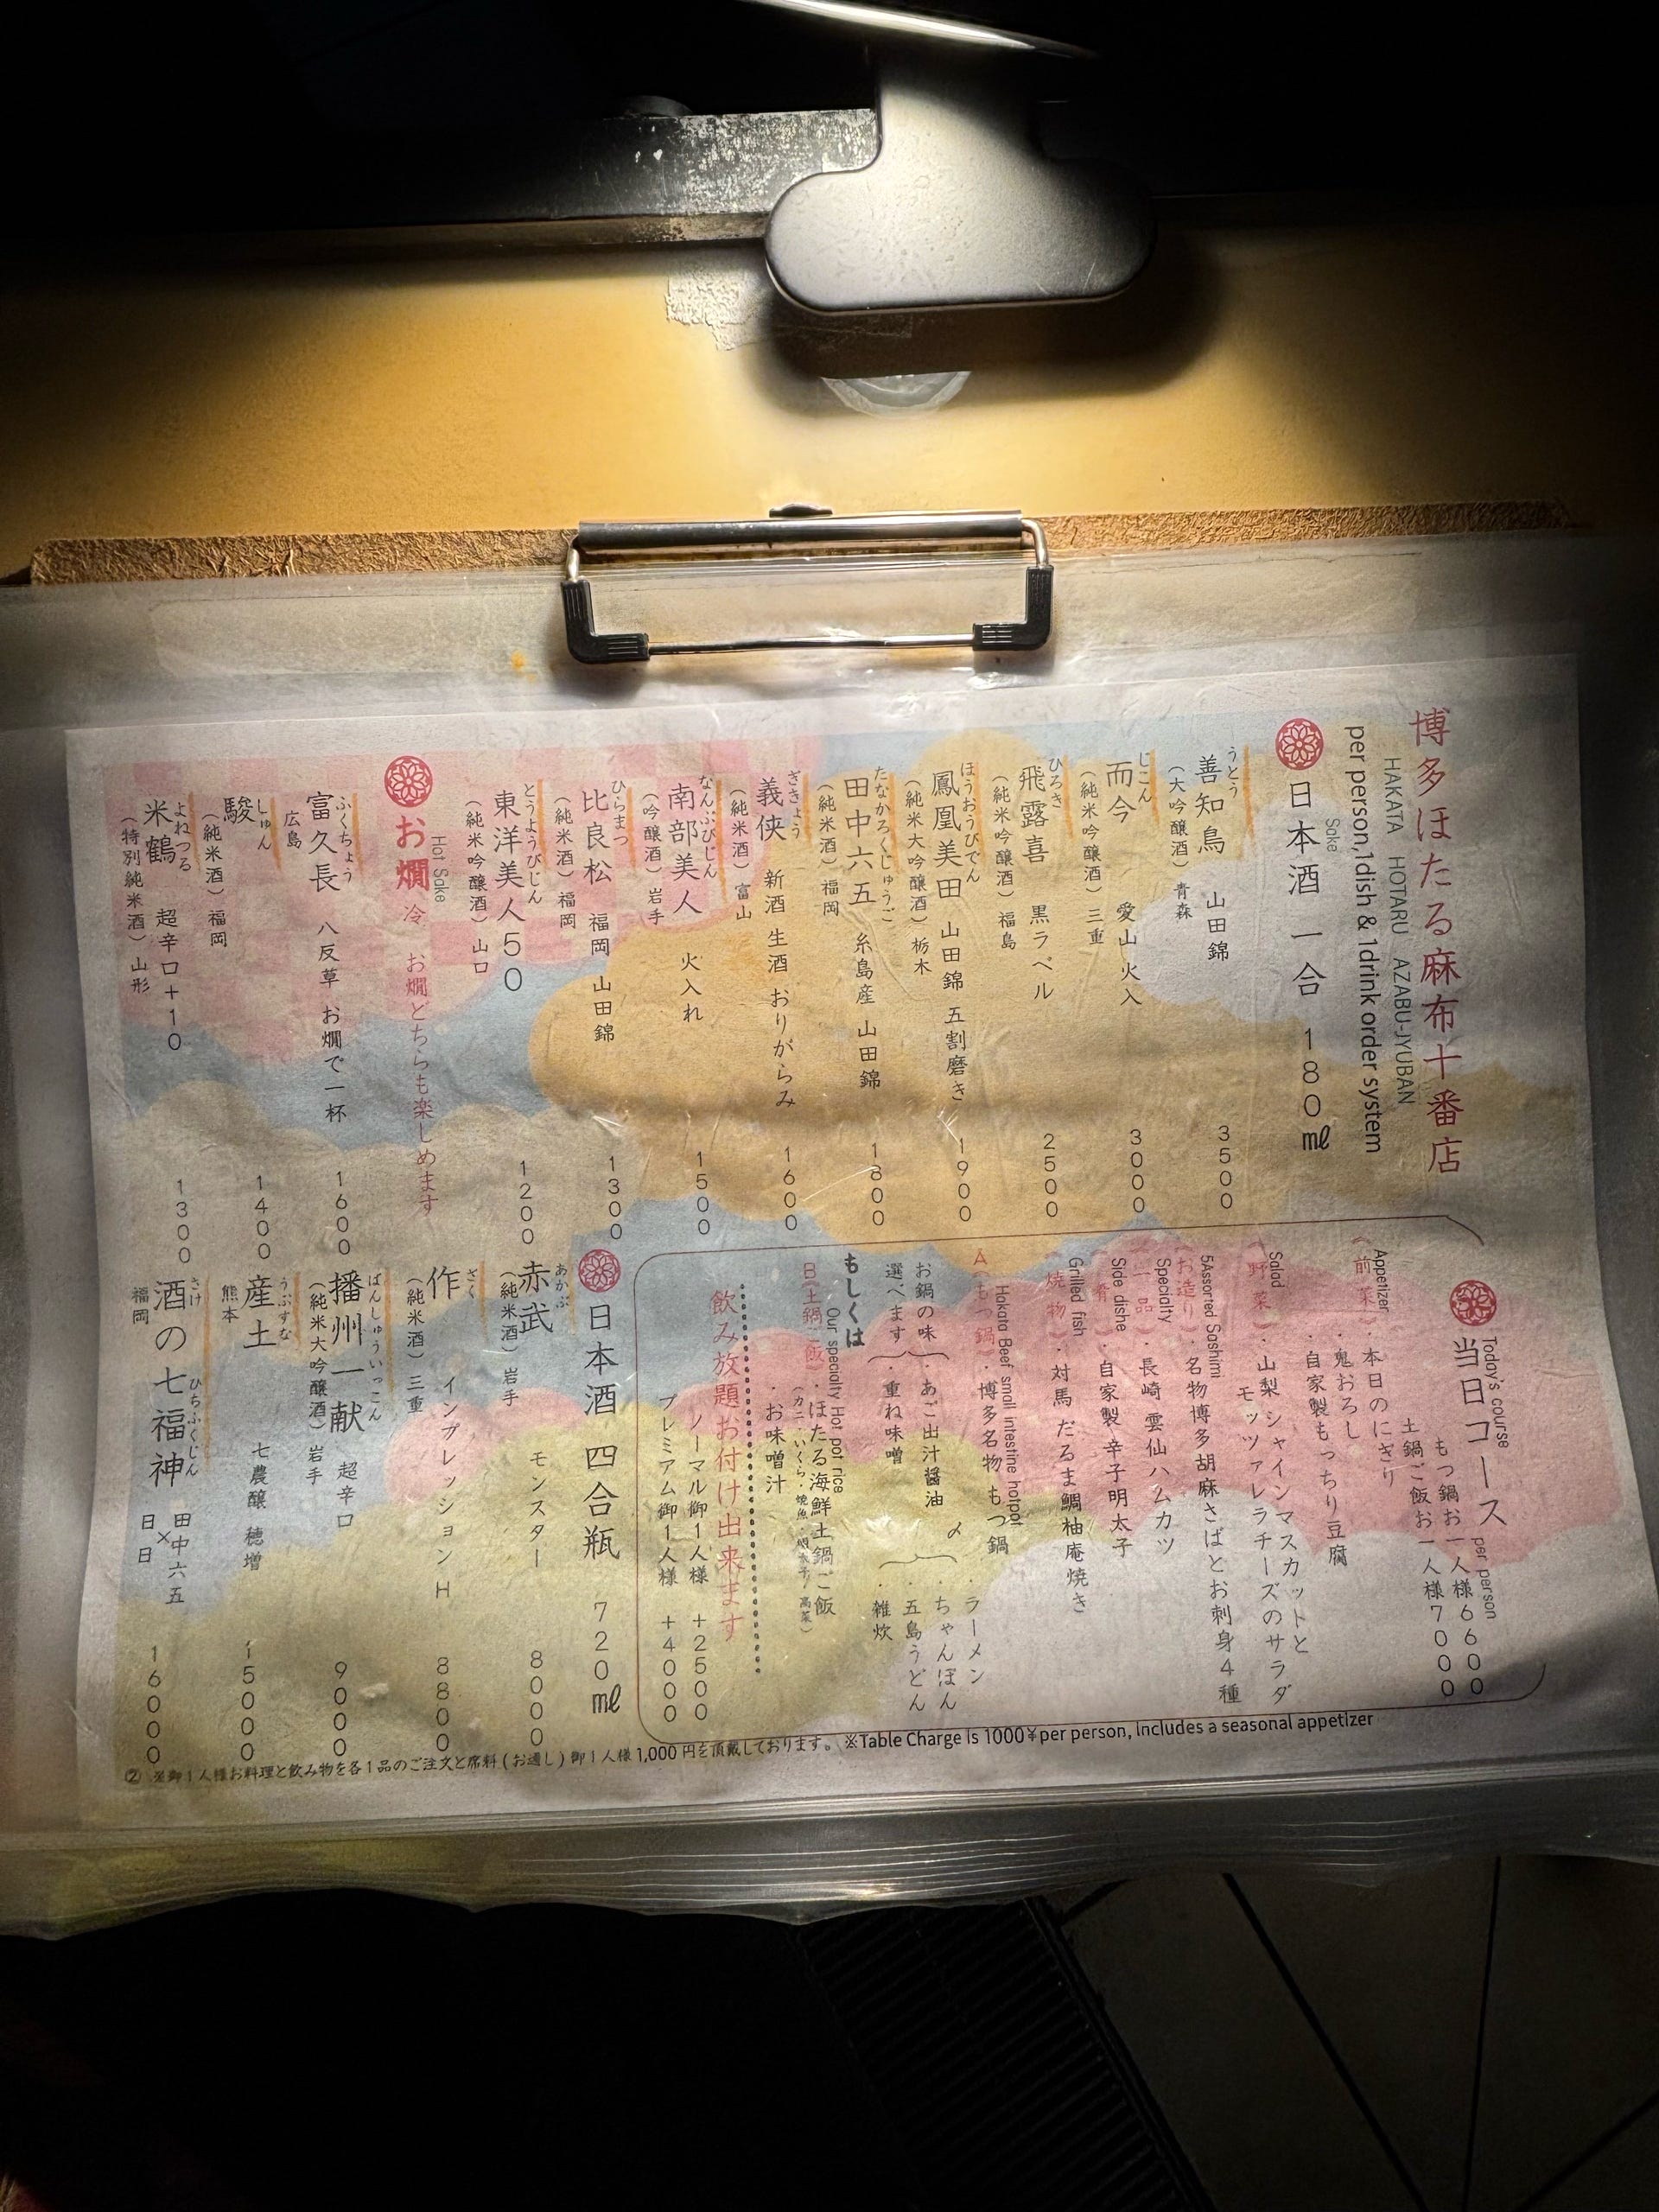 博多ほたる麻布十番店
HAKATA HOTARU AZABU-JYUBAN
per person,1dish & 1drink order system
日本酒 一合 180㎖
Sake
うとう
善知鳥 山田錦 3500
(大吟醸酒) 青森
じこん
而今 愛山 火入 3000
(純米吟醸酒) 三重
ひろき
飛露喜 黒ラベル 2500
(純米吟醸酒) 福島
ほうおうびでん
鳳凰美田 山田錦 五割磨き 1900
(純米大吟醸酒) 栃木
たなかろくじゅうご
田中六五 糸島産 山田錦 1800
(純米酒) 福岡
ぎきょう
義侠 新酒 生酒 おりがらみ 1600
(純米酒) 富山
なんぶびじん
南部美人 火入れ 1500
(吟醸酒) 岩手
ひらまつ
比良松 福岡 山田錦 1300
(純米酒) 福岡
とうようびじん
東洋美人50 1200
(純米吟醸酒) 山口
Hot Sake
お燗 冷 お燗どちらも楽しめます
ふくちょう
富久長 八反草 お燗で一杯 1600
広島
しゅん
駿 1400
(純米酒) 福岡
よねつる
米鶴 超辛口+10 1300
(特別純米酒) 山形
Today's course
当日コース
per person
もつ鍋お一人様6600
土鍋ご飯お一人様7000
Appetizer
《前菜》・本日のにぎり
・鬼おろし
・自家製もっちり豆腐
Salad
《野菜》・山梨 シャインマスカットと
モッツァレラチーズのサラダ
5Assorted Sashimi
《お造り》・名物博多胡麻さばとお刺身4種
Specialty
《一品》・長崎 雲仙ハムカツ
Side dishe
《肴》・自家製 辛子明太子
Grilled fish
《焼物》・対馬 だるま鯛柚庵焼き
Hakata Beef small intestine hotpot
A《もつ鍋》・博多名物 もつ鍋
お鍋の味
選べます
・あご出汁醤油
・重ね味噌
〆
・ラーメン
・ちゃんぽん
・五島うどん
・雑炊
もしくは
Our specialty Hot pot rice
B《土鍋ご飯》・ほたる海鮮土鍋ご飯
(カニ・いくら・焼魚・明太子・高菜)
・お味噌汁
飲み放題お付け出来ます
ノーマル御1人様 +2500
プレミアム御1人様 +4000
日本酒 四合瓶 720㎖
あかぶ
赤武 モンスター 8000
(純米酒) 岩手
ざく
作 インプレッションH 8800
(純米酒) 三重
ばんしゅういっこん
播州一献 超辛口 9000
(純米大吟醸酒) 岩手
うぶすな
産土 七農醸 穂増 15000
熊本
さけ ひちふくじん
酒の七福神 田中六五×日日 16000
福岡
② ※御1人様お料理と飲み物を各1品のご注文と席料(お通し)御1人様1,000円を頂戴しております。 ※Table Charge is 1000¥per person, includes a seasonal appetizer